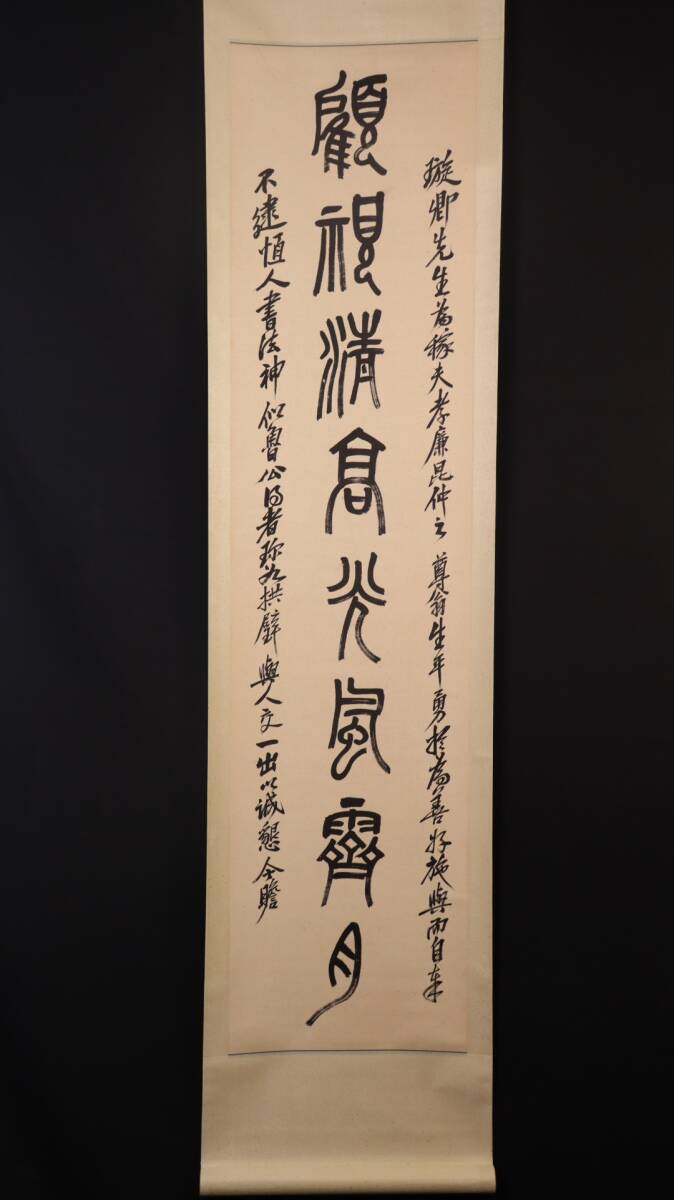 璇卿先生為稼夫孝廉昆仲之 尊翁生平勇於為善好施與而自奉
顧視清高光風霽月
不逮恆人書法神似魯公得者珍如拱璧與人交一出以誠懇今瞻